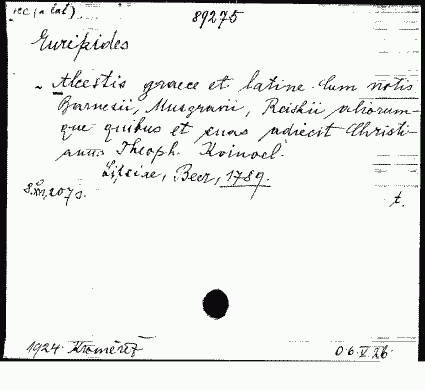 rec (a lat)
89275
Euripides
- Alcestis graece et latine. Cum notis
Barnesii, Musgravii, Reiskii aliorum-
que quibus et suas adiecit Christi-
anus Theoph. Kuinoel.
Lipsiae, Beer, 1789.
207 s.
t.
1924. Kroměříž
06.V.26.